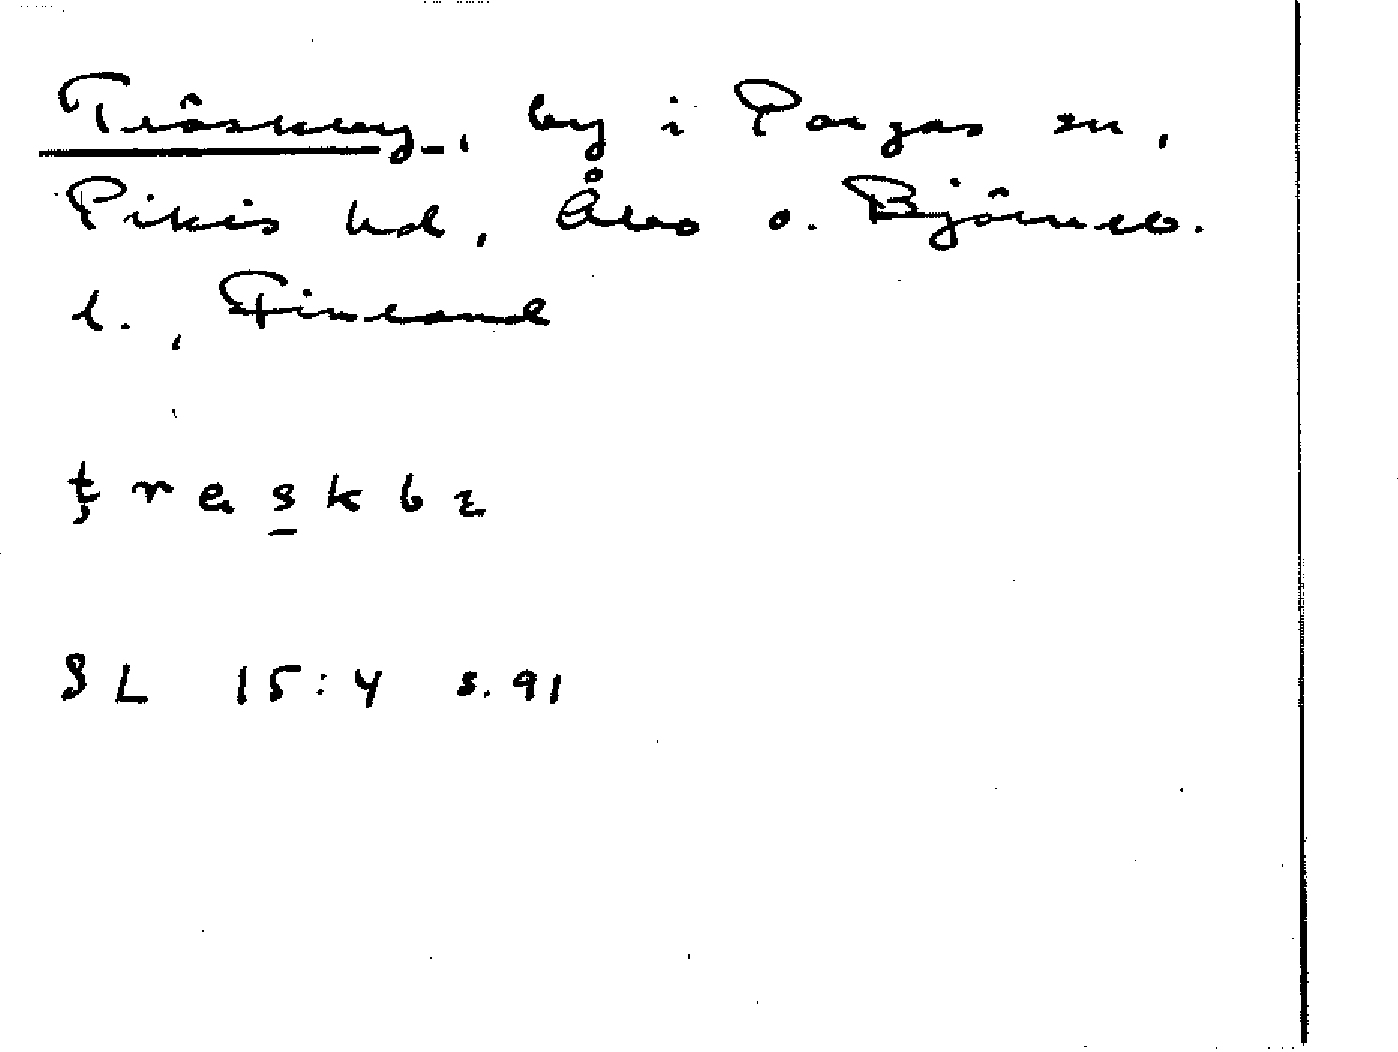 Träskby, by i Pargas sn,
Pikis hd, Åbo o. Björneb.
l., Finland
träskbı
SL 15:4 s. 91